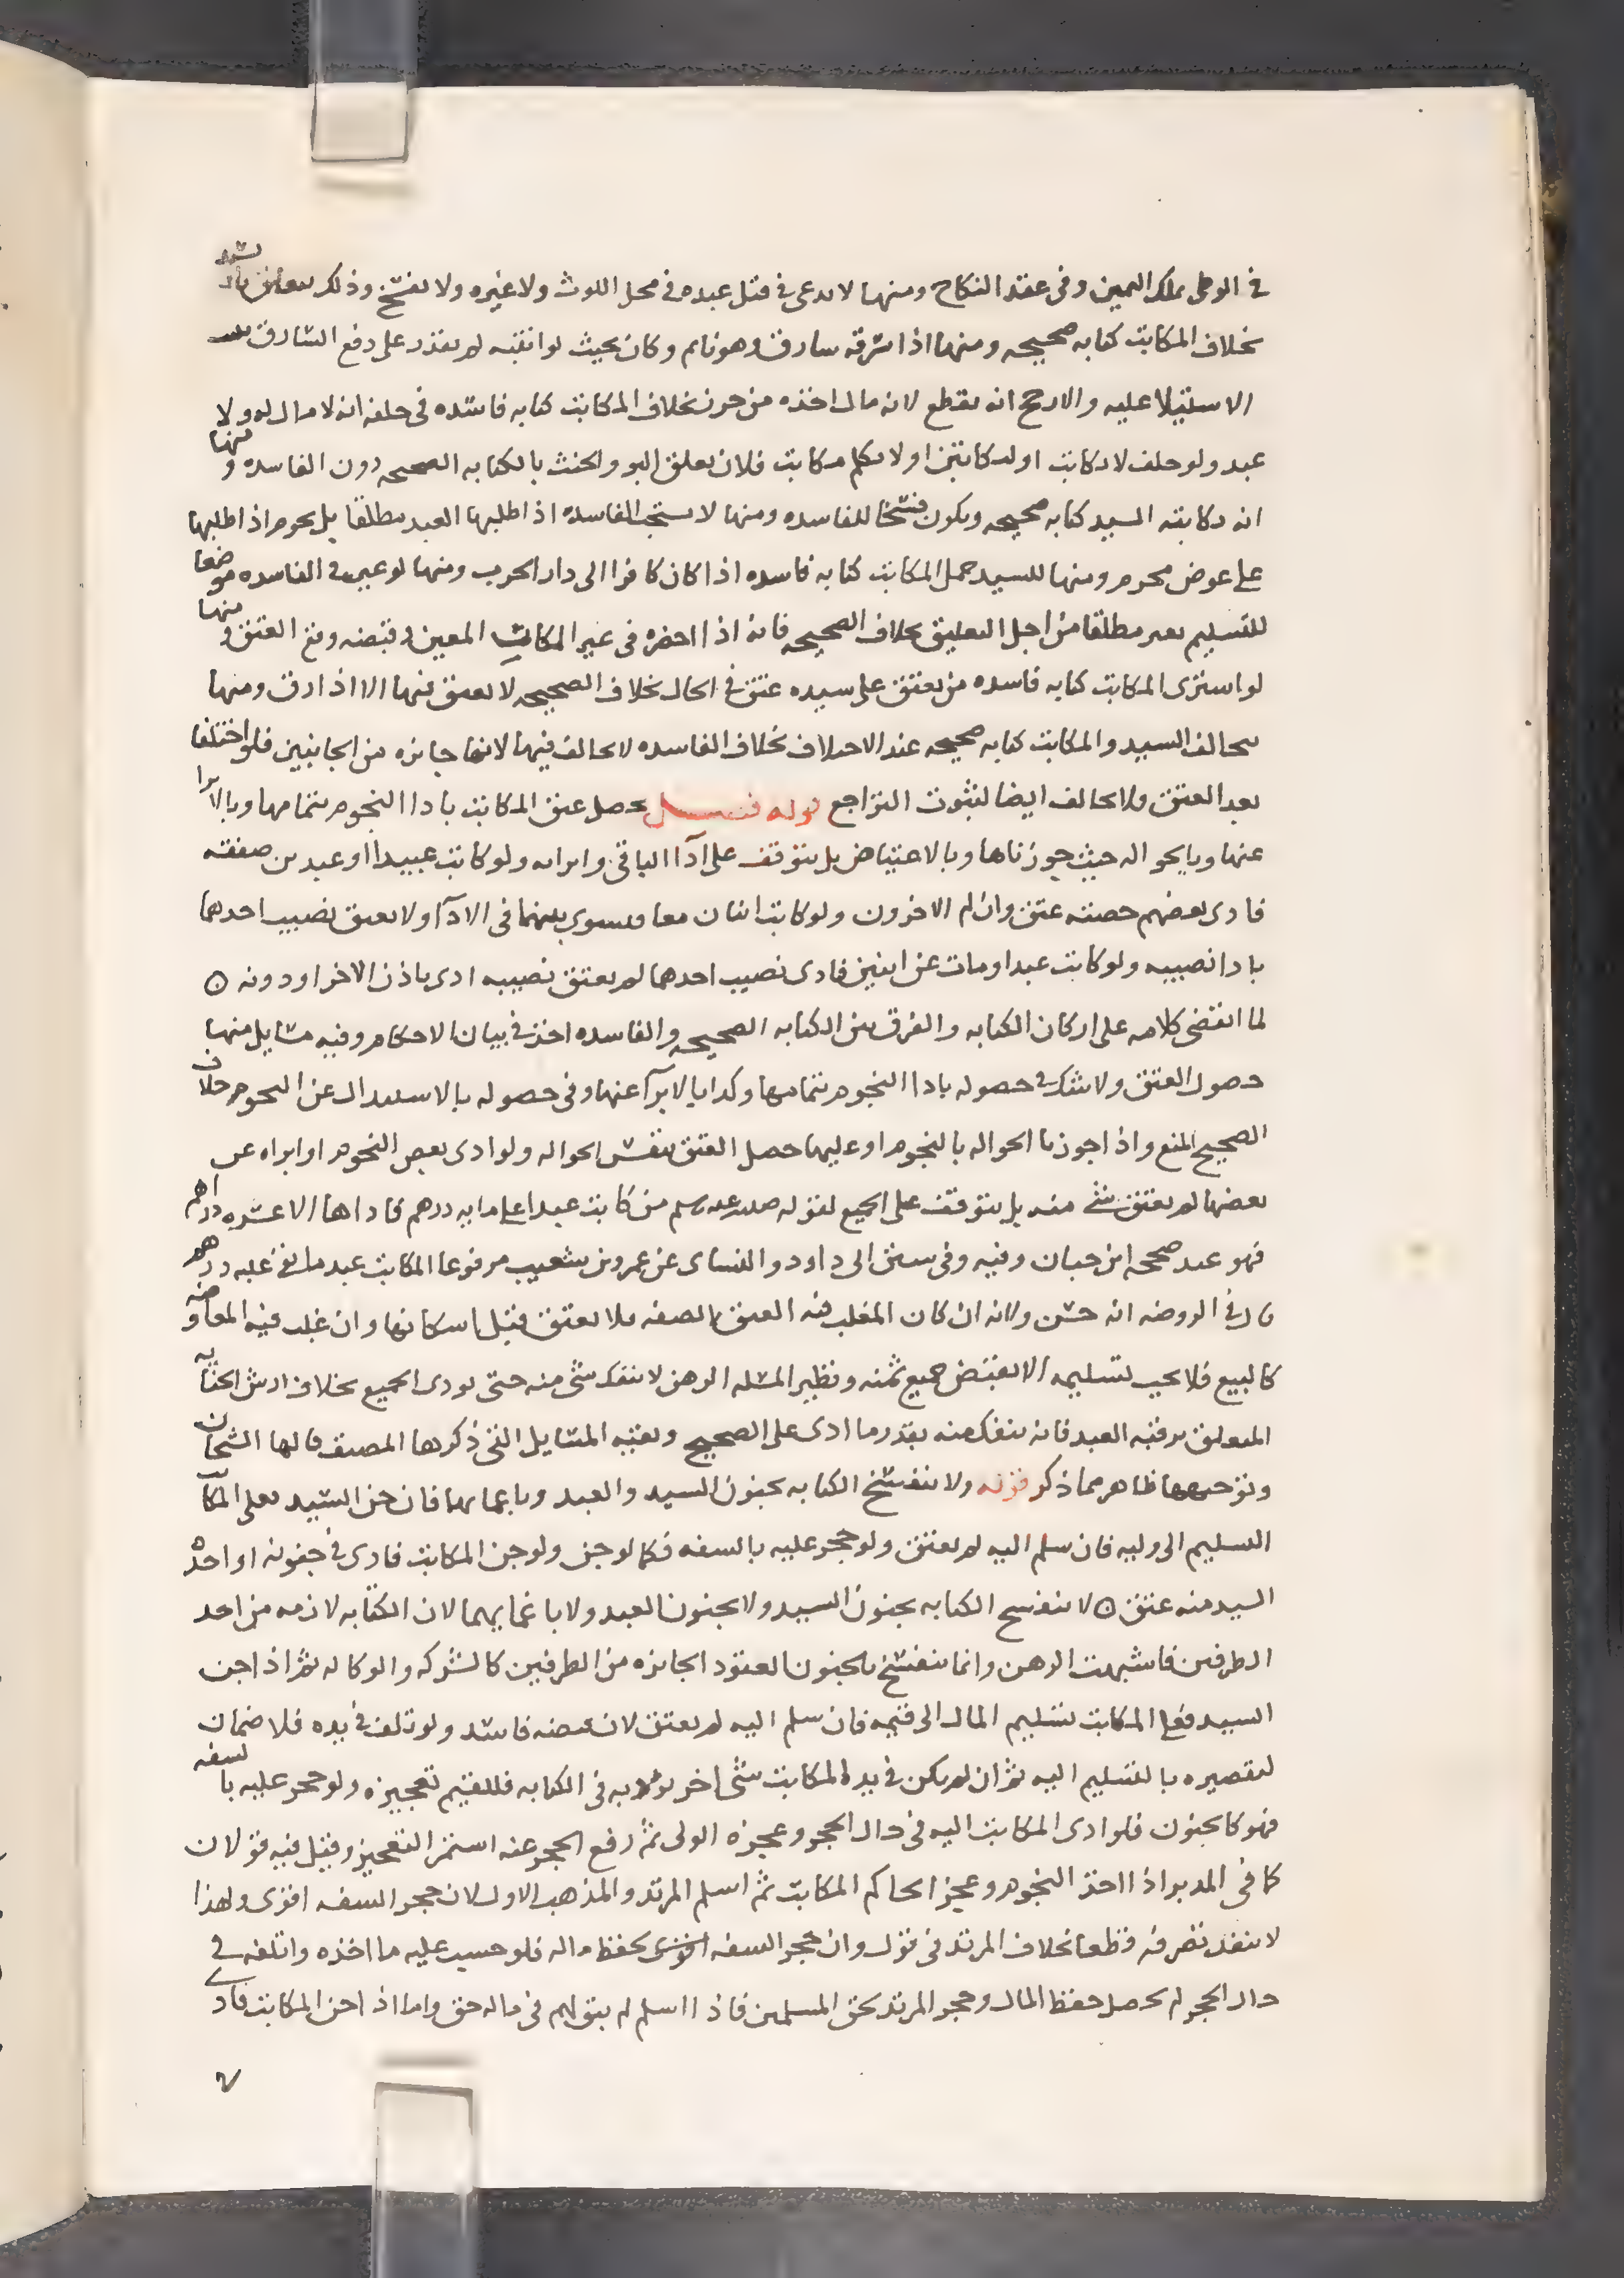 في الوطى بملك اليمين وفى عقد النكاح ومنها لا يدعى في قتل عبده في محل اللوث ولا غيره ولا يفسخ وذلك
بخلاف المكاتب كتابه صحيحه ومنها اذا سرقه سارق وهو نايم وكان بحيث لو انتبه لم يقدر على دفع السارق
الاستيلا عليه والارجح انه يقطع لانه مال اخذه من حرز بخلاف المكاتب كتابه فاسده في حلفه انه لا مال له ولا
عبد ولو حلف لا يكاتب او لا يكلم مكاتب فلان تعلق البر والحنث بالكتابه الصحيحه دون الفاسده ومنها
انه يكاتبه السيد كتابه صحيحه ويكون فسخا للفاسده ومنها لا يستحب الفاسده اذا طلبها العبد مطلقا بل يحرم اذا طلبها
على عوض محرم ومنها للسيد حمل المكاتب كتابه فاسده اذا كان كافرا الى دار الحرب ومنها لو عين في الفاسده موضعا
للتسليم تعين مطلقا من اجل التعليق بخلاف الصحيحه فانه اذا احضره في غير المكان المعين وقبضه وقع العتق ومنها
لو اشترى المكاتب كتابه فاسده من يعتق على سيده عتق في الحال بخلاف الصحيحه لا يعتق فيها الا اذا رق ومنها
يتحالف السيد والمكاتب كتابه صحيحه عند الاختلاف بخلاف الفاسده لا تحالف فيها لانها جايزه من الجانبين فلو اختلفا
بعد العتق فلا تحالف ايضا لثبوت التراجع قوله فصل يحصل عتق المكاتب باداا النجوم بتمامها وبالابرا
عنها وبالحواله حيث جوزناها وبالاعتياض بل يتوقف على اداا الباقي وابرايه ولو كاتب عبيدا او عبدين صفقه
فادى بعضهم حصته عتق وان لم الاخرون ولو كاتب اثنان معا فيسوى بينهما في الادآ ولا يعتق نصيب احدهما
بادا نصيبه ولو كاتب عبدا ومات عن ابنين فادى نصيب احدهما لم يعتق نصيبه ادى باذن الاخر او دونه ۞
لما انقضى كلامه على اركان الكتابه والفرق بين الكتابه الصحيحه والفاسده اخذ في بيان الاحكام وفيه مسايل منها
حصول العتق ولا شك في حصوله باداا النجوم بتمامها وكذا بالابرآ عنها وفي حصوله بالاستبدال عن النجوم خلاف
الصحيح المنع واذا جوزنا الحواله بالنجوم او عليها حصل العتق بنفس الحواله ولو ادى بعض النجوم او ابراه عن
بعضها لم يعتق شي منه بل يتوقف على الجميع لقوله صلى الله عليه وسلم من كاتب عبدا على مايه درهم فاداها الا عشره دراهم
فهو عبد صححه ابن حبان وفيه وفي سنن ابى داود والنساى عن عمرو بن شعيب مرفوعا المكاتب عبد ما بقى عليه درهم
قال في الروضه انه حسن ولانه ان كان المغلب فيه العتق بالصفه فلا يعتق قبل استكمالها وان غلب فيه المعاوضه
كالبيع فلا يجب تسليمه الا بقبض جميع ثمنه ونظير المسله الرهن لا ينفك شى منه حتى يودى الجميع بخلاف ارش الجنايه
المتعلق برقبه العبد فانه ينفك منه بقدر ما ادى على الصحيح وبقيه المسايل التى ذكرها المصنف قالها الشيخان
وتوجيهها ظاهر مما ذكر قوله ولا ينفسخ الكتابه بجنون السيد والعبد وباغمايهما فان جن السيد فعلى المكاتب
التسليم الى وليه فان سلم اليه لم يعتق ولو حجر عليه بالسفه فكما لو جن ولو جن المكاتب فادى في جنونه او اخذه
السيد منه عتق ۞ لا ينفسخ الكتابه بجنون السيد ولا بجنون العبد ولا باغمايهما لان الكتابه لازمه من احد
الطرفين فاشبهت الرهن وانما ينفسخ بالجنون العقود الجايزه من الطرفين كالشركه والوكاله ثم اذا جن
السيد فعلى المكاتب تسليم المال الى قيمه فان سلم اليه لم يعتق لان قبضه فاسد ولو تلف في يده فلا ضمان
لتقصيره بالتسليم اليه ثم ان لم يكن في يد المكاتب شى اخر يوديه في الكتابه فللقيم تعجيزه ولو حجر عليه بالسفه
فهو كالجنون فلو ادى المكاتب اليه في حال الحجر وعجزه الولى ثم رفع الحجر عنه استمر التعجيز وقيل فيه قولان
كما في المدبر اذا اخذ النجوم وعجز الحاكم المكاتب ثم اسلم المرتد والمذهب الاول لان حجر السفه اقوى ولهذا
لا ينفذ تصرفه قطعا بخلاف المرتد في قول وان حجر السفه لحفظ ماله فلو حسب عليه ما اخذه واتلفه في
حال الحجر لم يحصل حفظ المال وحجر المرتد لحق المسلمين فاذا اسلم لم يبق لهم في ماله حق واما اذا جن المكاتب فادى